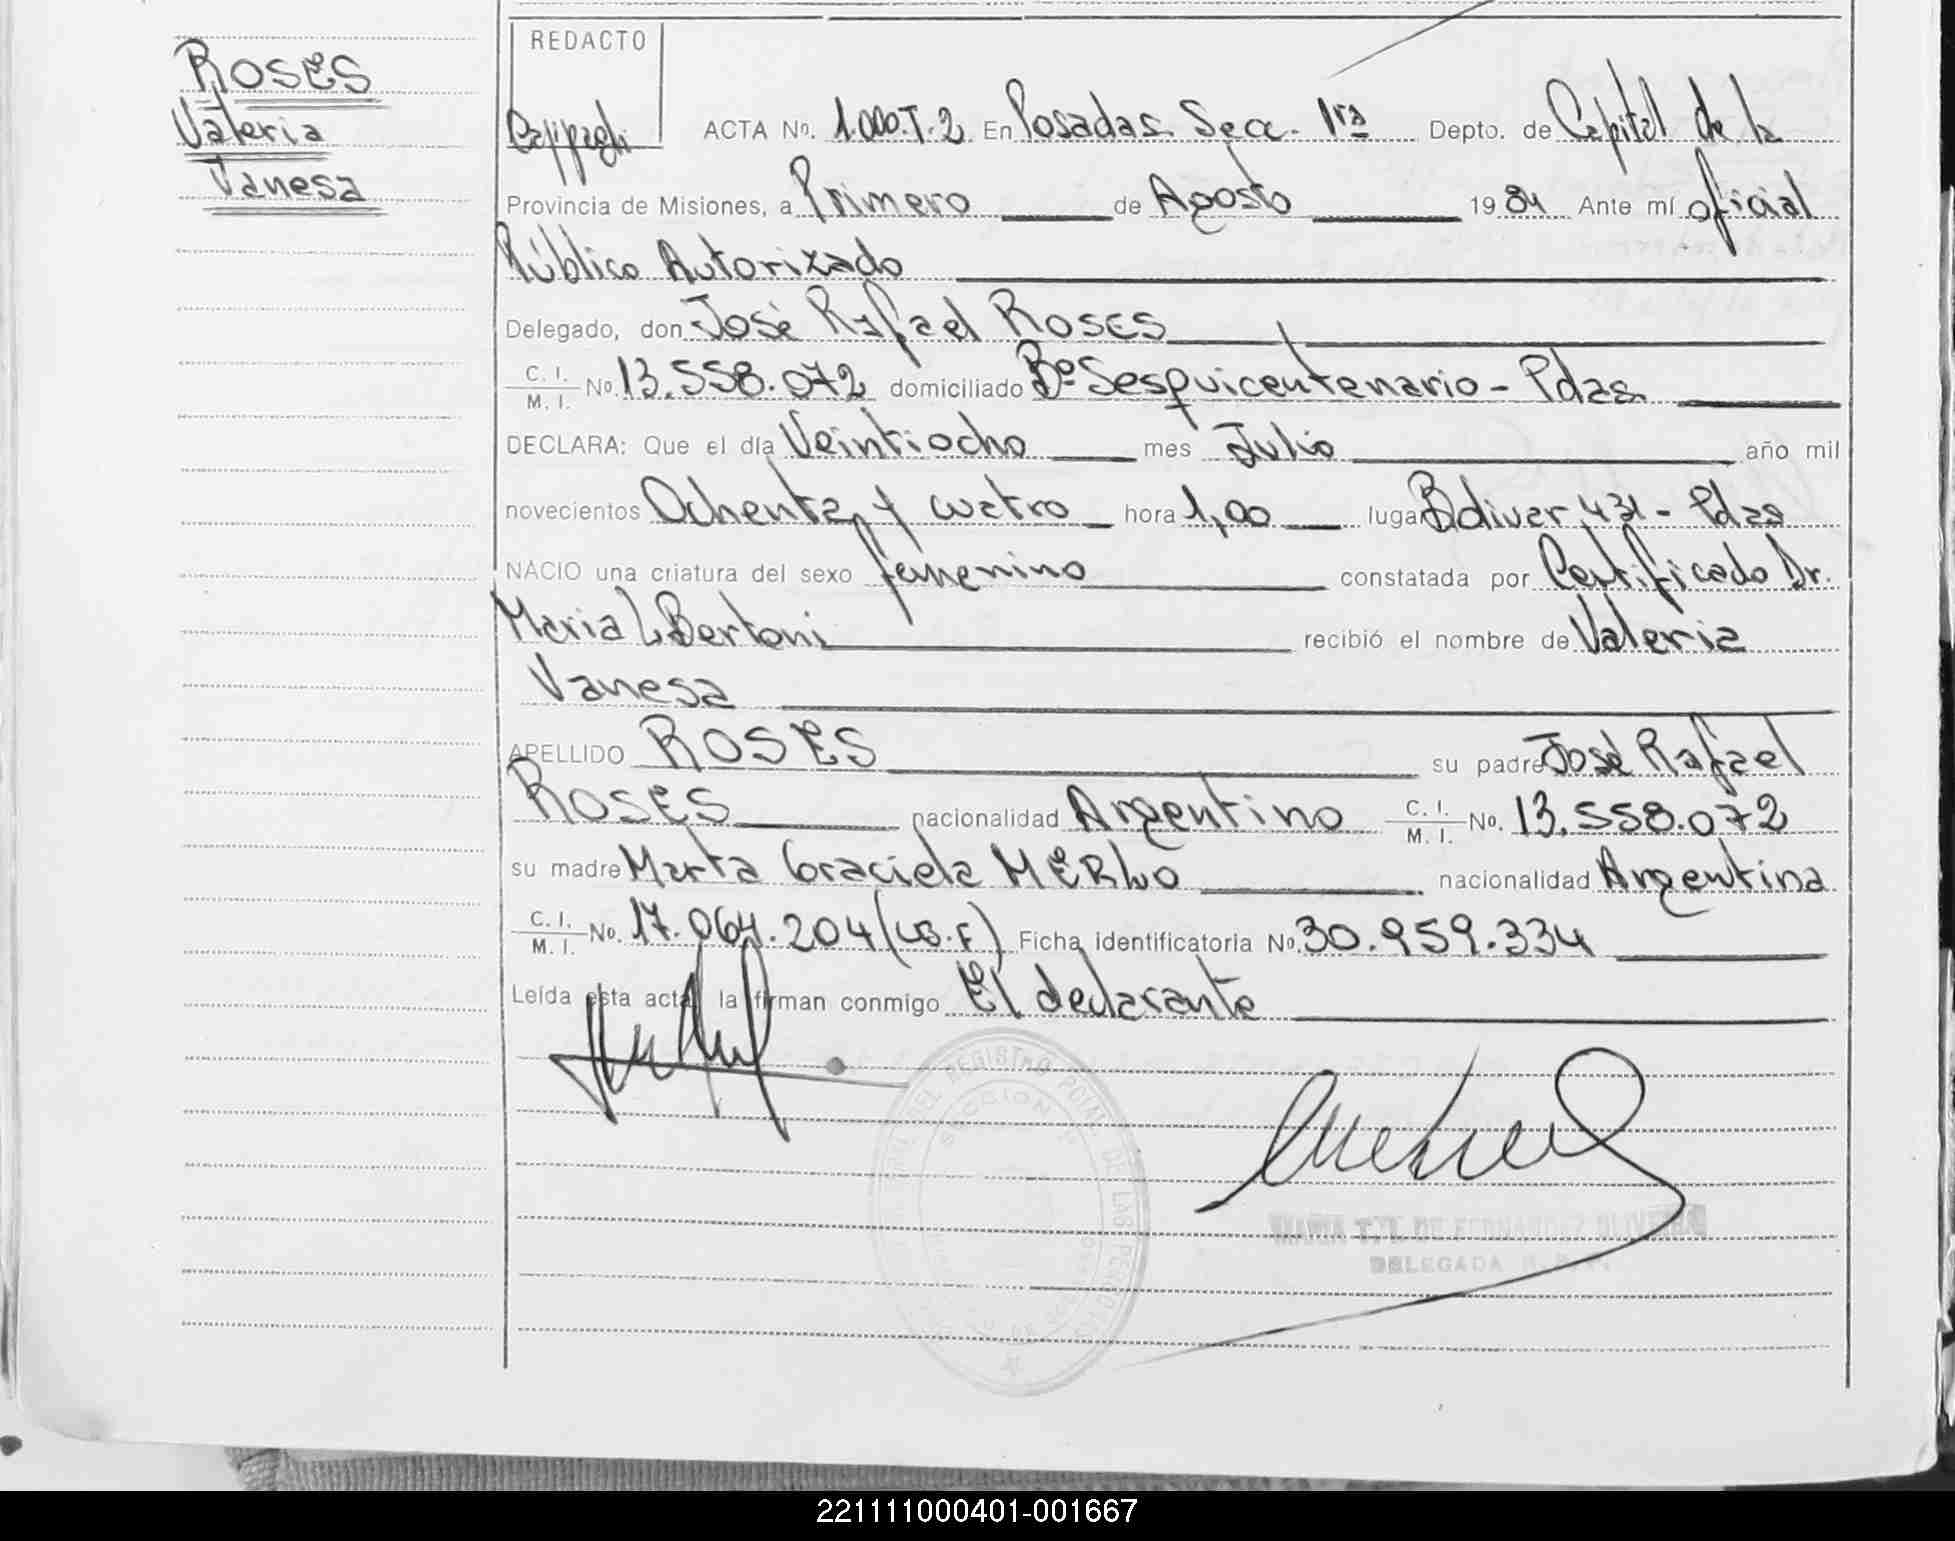 ROSES
Valeria
Vanesa
REDACTO
ACTA Nº. 1.000.T.2 En Posadas Secc. 1ra Depto. de Capital de la
Provincia de Misiones, a Primero de Agosto 1984 Ante mí oficial
Público Autorizado
Delegado, don José Rafael Roses
C. I.
M. I. Nº. 13.558.072 domiciliado Bº Sesquicentenario - Pdas.
DECLARA: Que el día Veintiocho mes Julio año mil
novecientos Ochenta y cuatro hora 1,00 lugar Bolivar 431 - Pdas
NACIO una criatura del sexo femenino constatada por Certificado Dr.
Maria L Bertoni recibió el nombre de Valeria
Vanesa
APELLIDO ROSES su padre José Rafael
ROSES nacionalidad Argentino C. I.
M. I. Nº. 13.558.072
su madre Marta Graciela MERLO nacionalidad Argentina
C. I.
M. I. Nº. 17.064.204 (LB.F) Ficha identificatoria Nº. 30.959.334
Leída esta acta, la firman conmigo El declarante
DE FERNANDEZ OLIVEIRA
DELEGADA R. P. P.
221111000401-001667